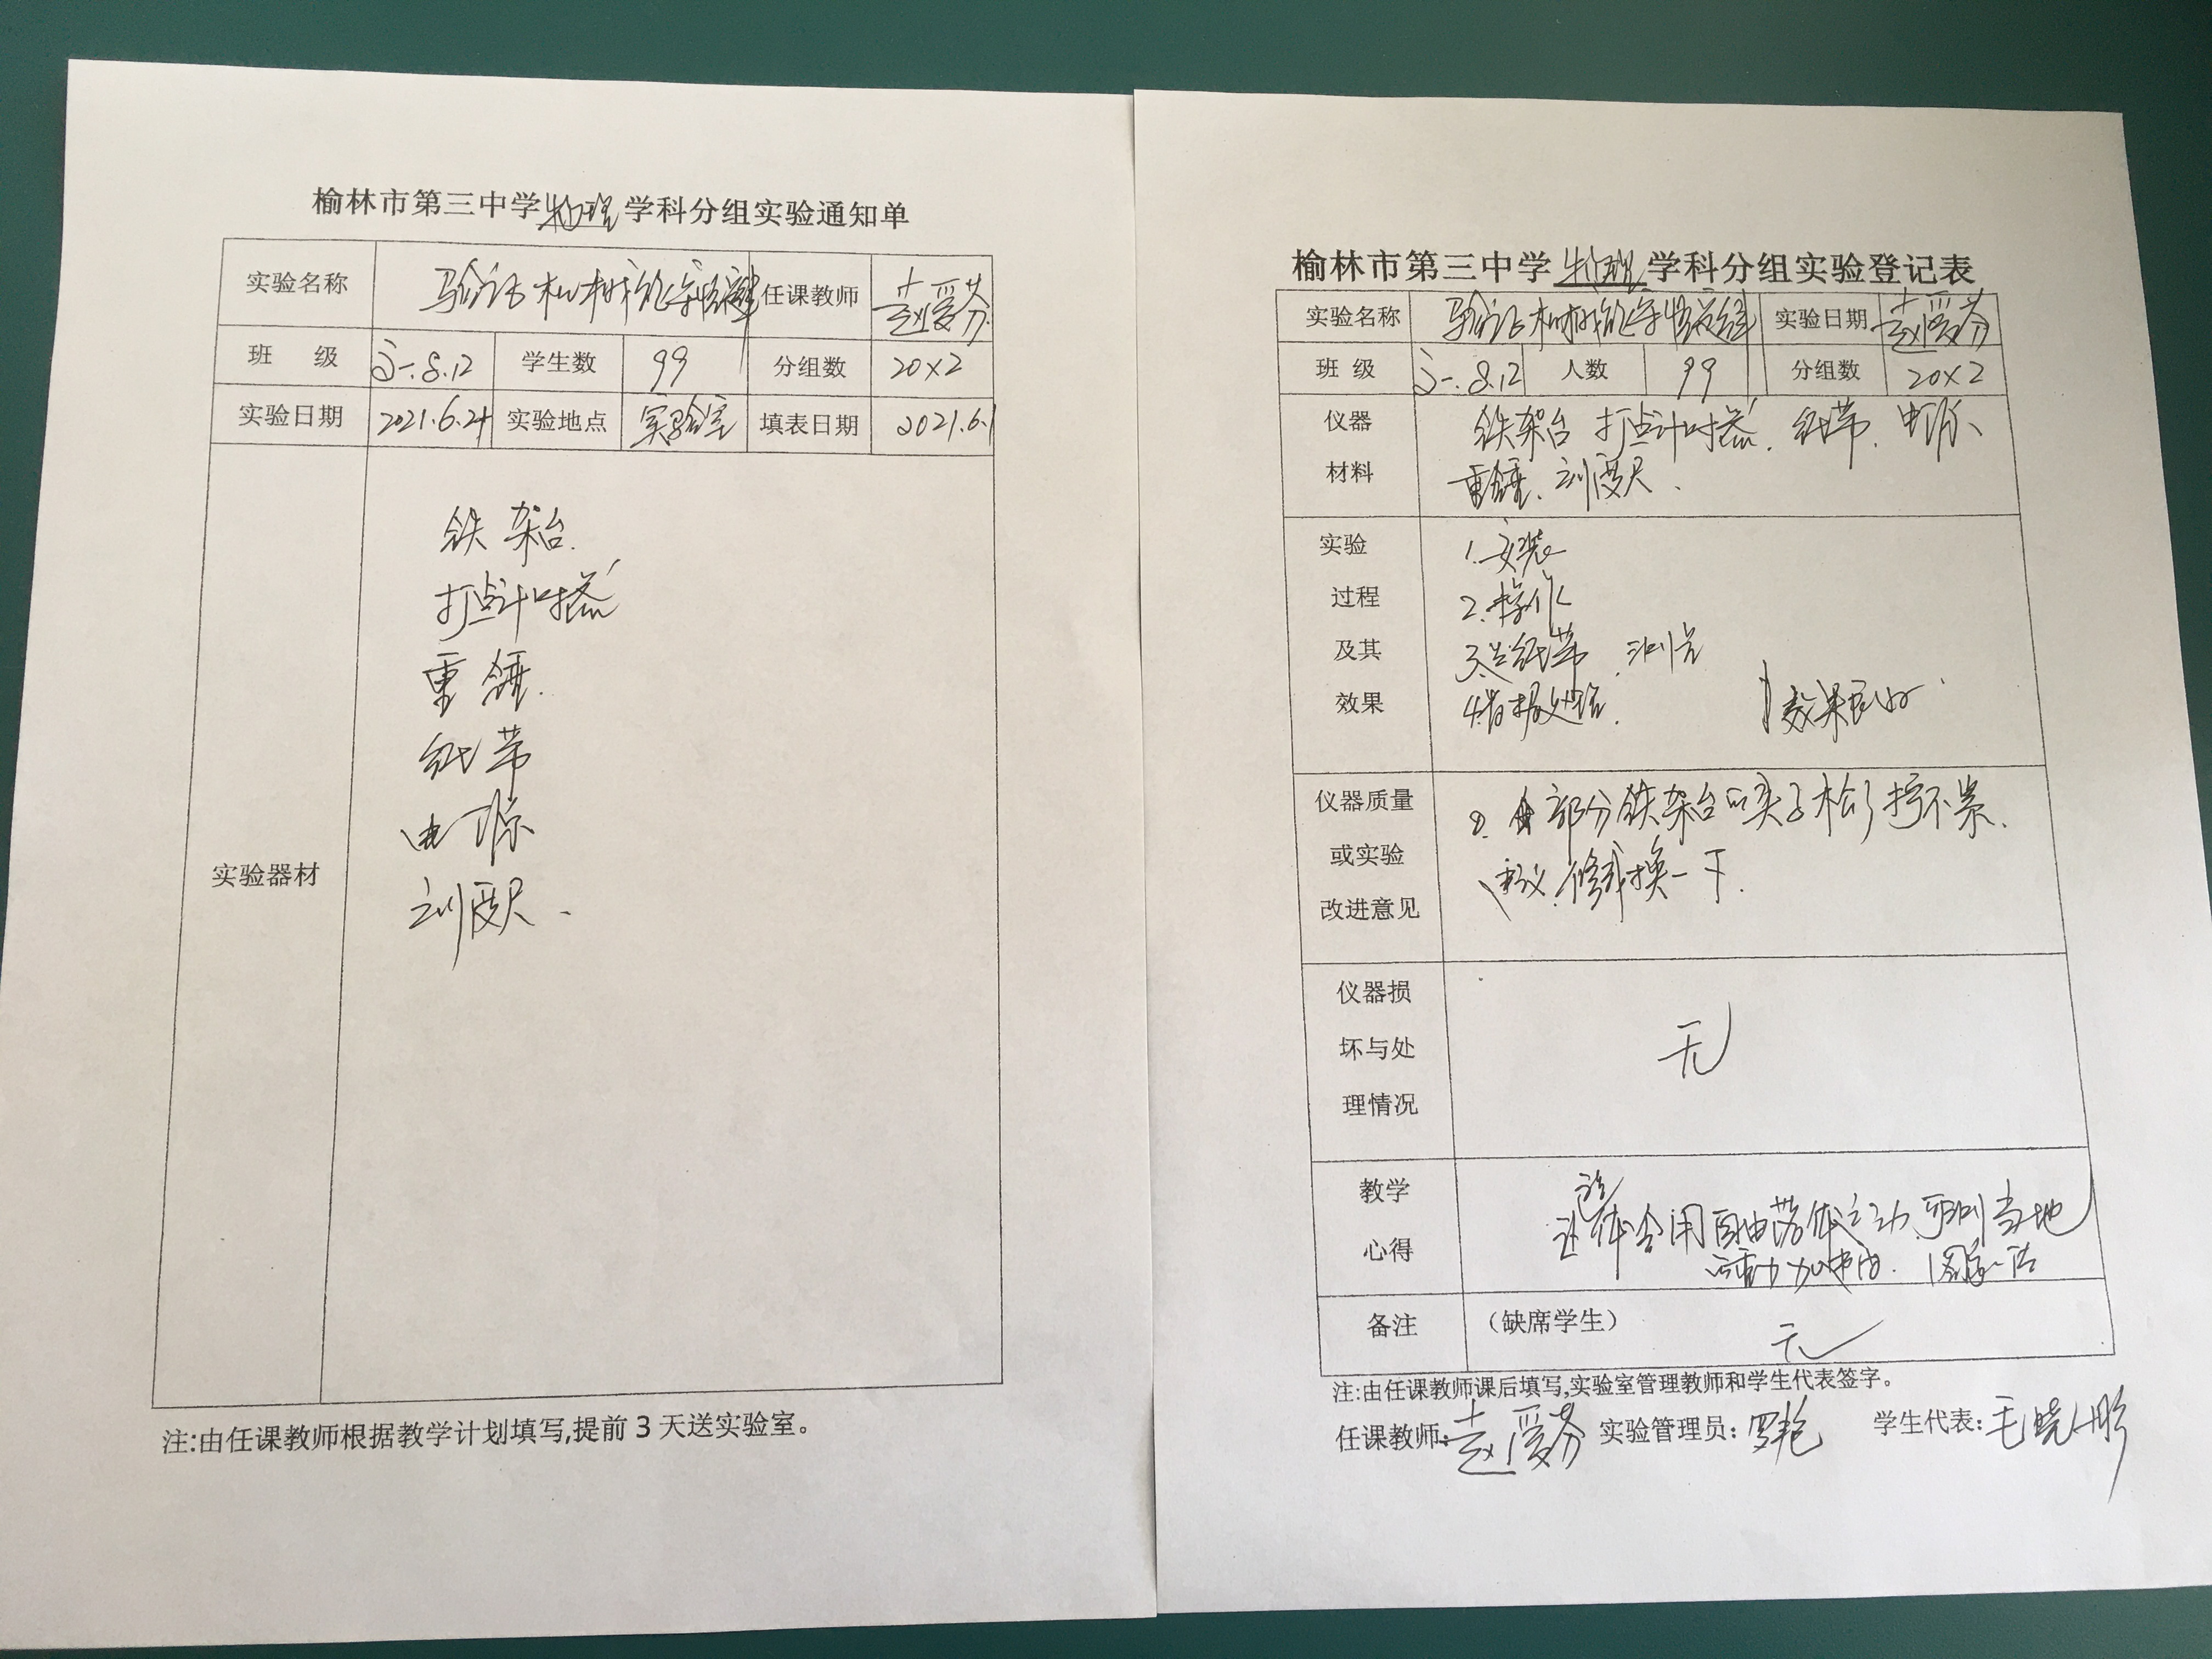 榆林市第三中学物理学科分组实验通知单
实验名称 验证机械能守恒定律 任课教师 赵爱芬
班 级 高一.8.12 学生数 99 分组数 20×2
实验日期 2021.6.24 实验地点 实验室 填表日期 2021.6.1
实验器材
铁架台.
打点计时器
重锤.
纸带
电源
刻度尺.
注:由任课教师根据教学计划填写,提前3天送实验室。
榆林市第三中学物理学科分组实验登记表
实验名称 验证机械能守恒定律 实验日期 赵爱芬
班 级 高一.8.12 人数 99 分组数 20×2
仪器材料
铁架台 打点计时器、纸带、电源、
重锤、刻度尺、
实验过程及其效果
1.安装
2.操作
3.选纸带、测量
4.数据处理. 效果良好
仪器质量或实验改进意见
部分铁架台的夹子松了拧不紧.
建议.修或换一下.
仪器损坏与处理情况
无
教学心得
用自由落体运动 可测当地
重力加速度.
备注 （缺席学生） 无
注:由任课教师课后填写,实验室管理教师和学生代表签字。
任课教师:赵爱芬 实验管理员:罗艳 学生代表:毛晓彤